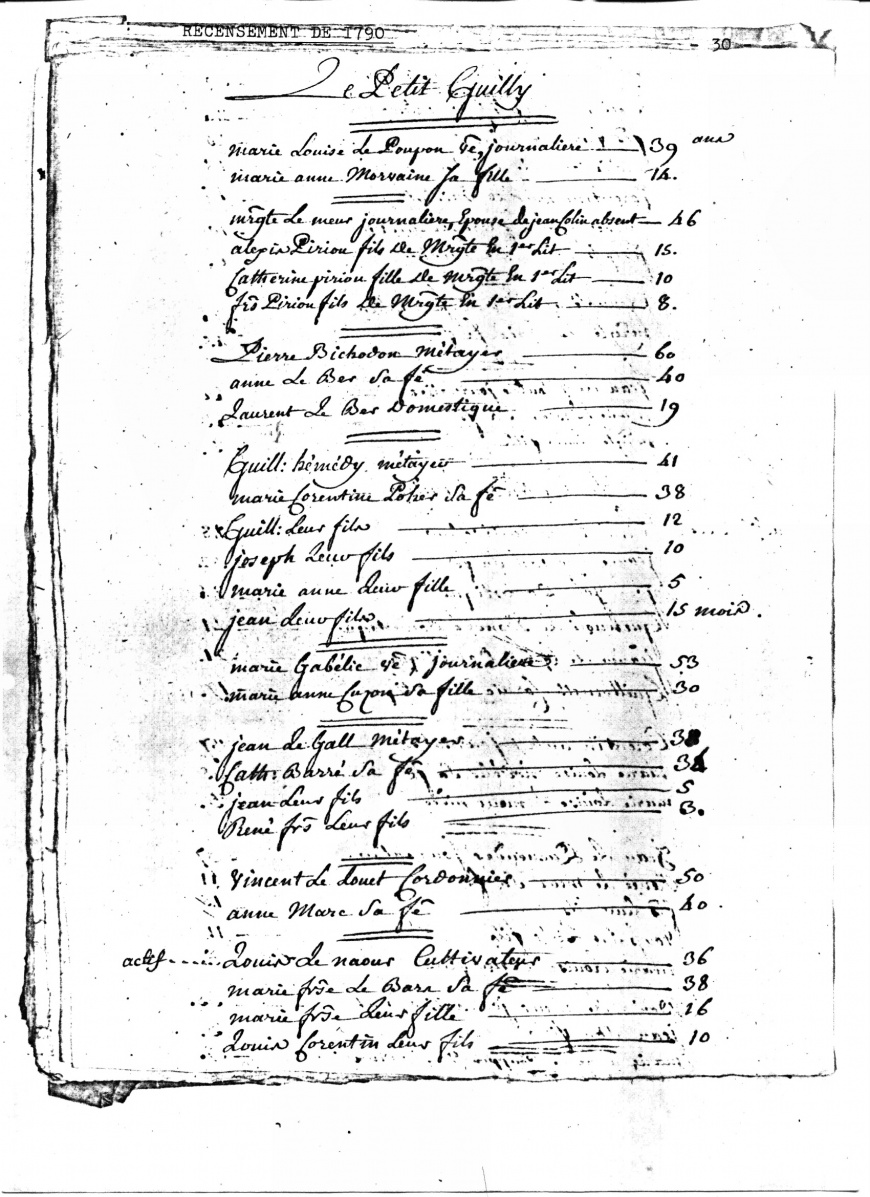 RECENSEMENT DE 1790
30
Le Petit Guilly
marie Louise Le Poupon ve, journaliere 39 ans
marie anne Morvaine Sa fille 14.
mrgte Le meur journaliere, Epouse de jean Colin absent 46
alexis Pirion fils de Mrgte En 1er Lit 15.
Catherine pirion fille de Mrgte En 1er Lit 10
frs Pirion fils de Mrgte En 1er Lit 8.
Pierre Bichodon Métayer 60
anne Le Ber Sa fe 40
Laurent Le Ber Domestique 19
Guill: hémédy métayer 41
marie Corentine Poher Sa fe 38
Guill: Leur fils 12
joseph Leur fils 10
marie anne Leur fille 5
jean Leur fils 15 mois.
marie Gabélic ve journaliere 53
marie anne Cuzon Sa fille 30
jean Le Gall Métayer
Cath: Barré Sa fe
jean Leur fils 5
René frs Leur fils 3.
Vincent Le Louet Cordonnier 50
anne Marc Sa fe 40.
actif Louis Le naour Cultivateur 36
marie frse Le Bars Sa fe 38
marie frse Leur fille 16
Louis Corentin Leur fils 10